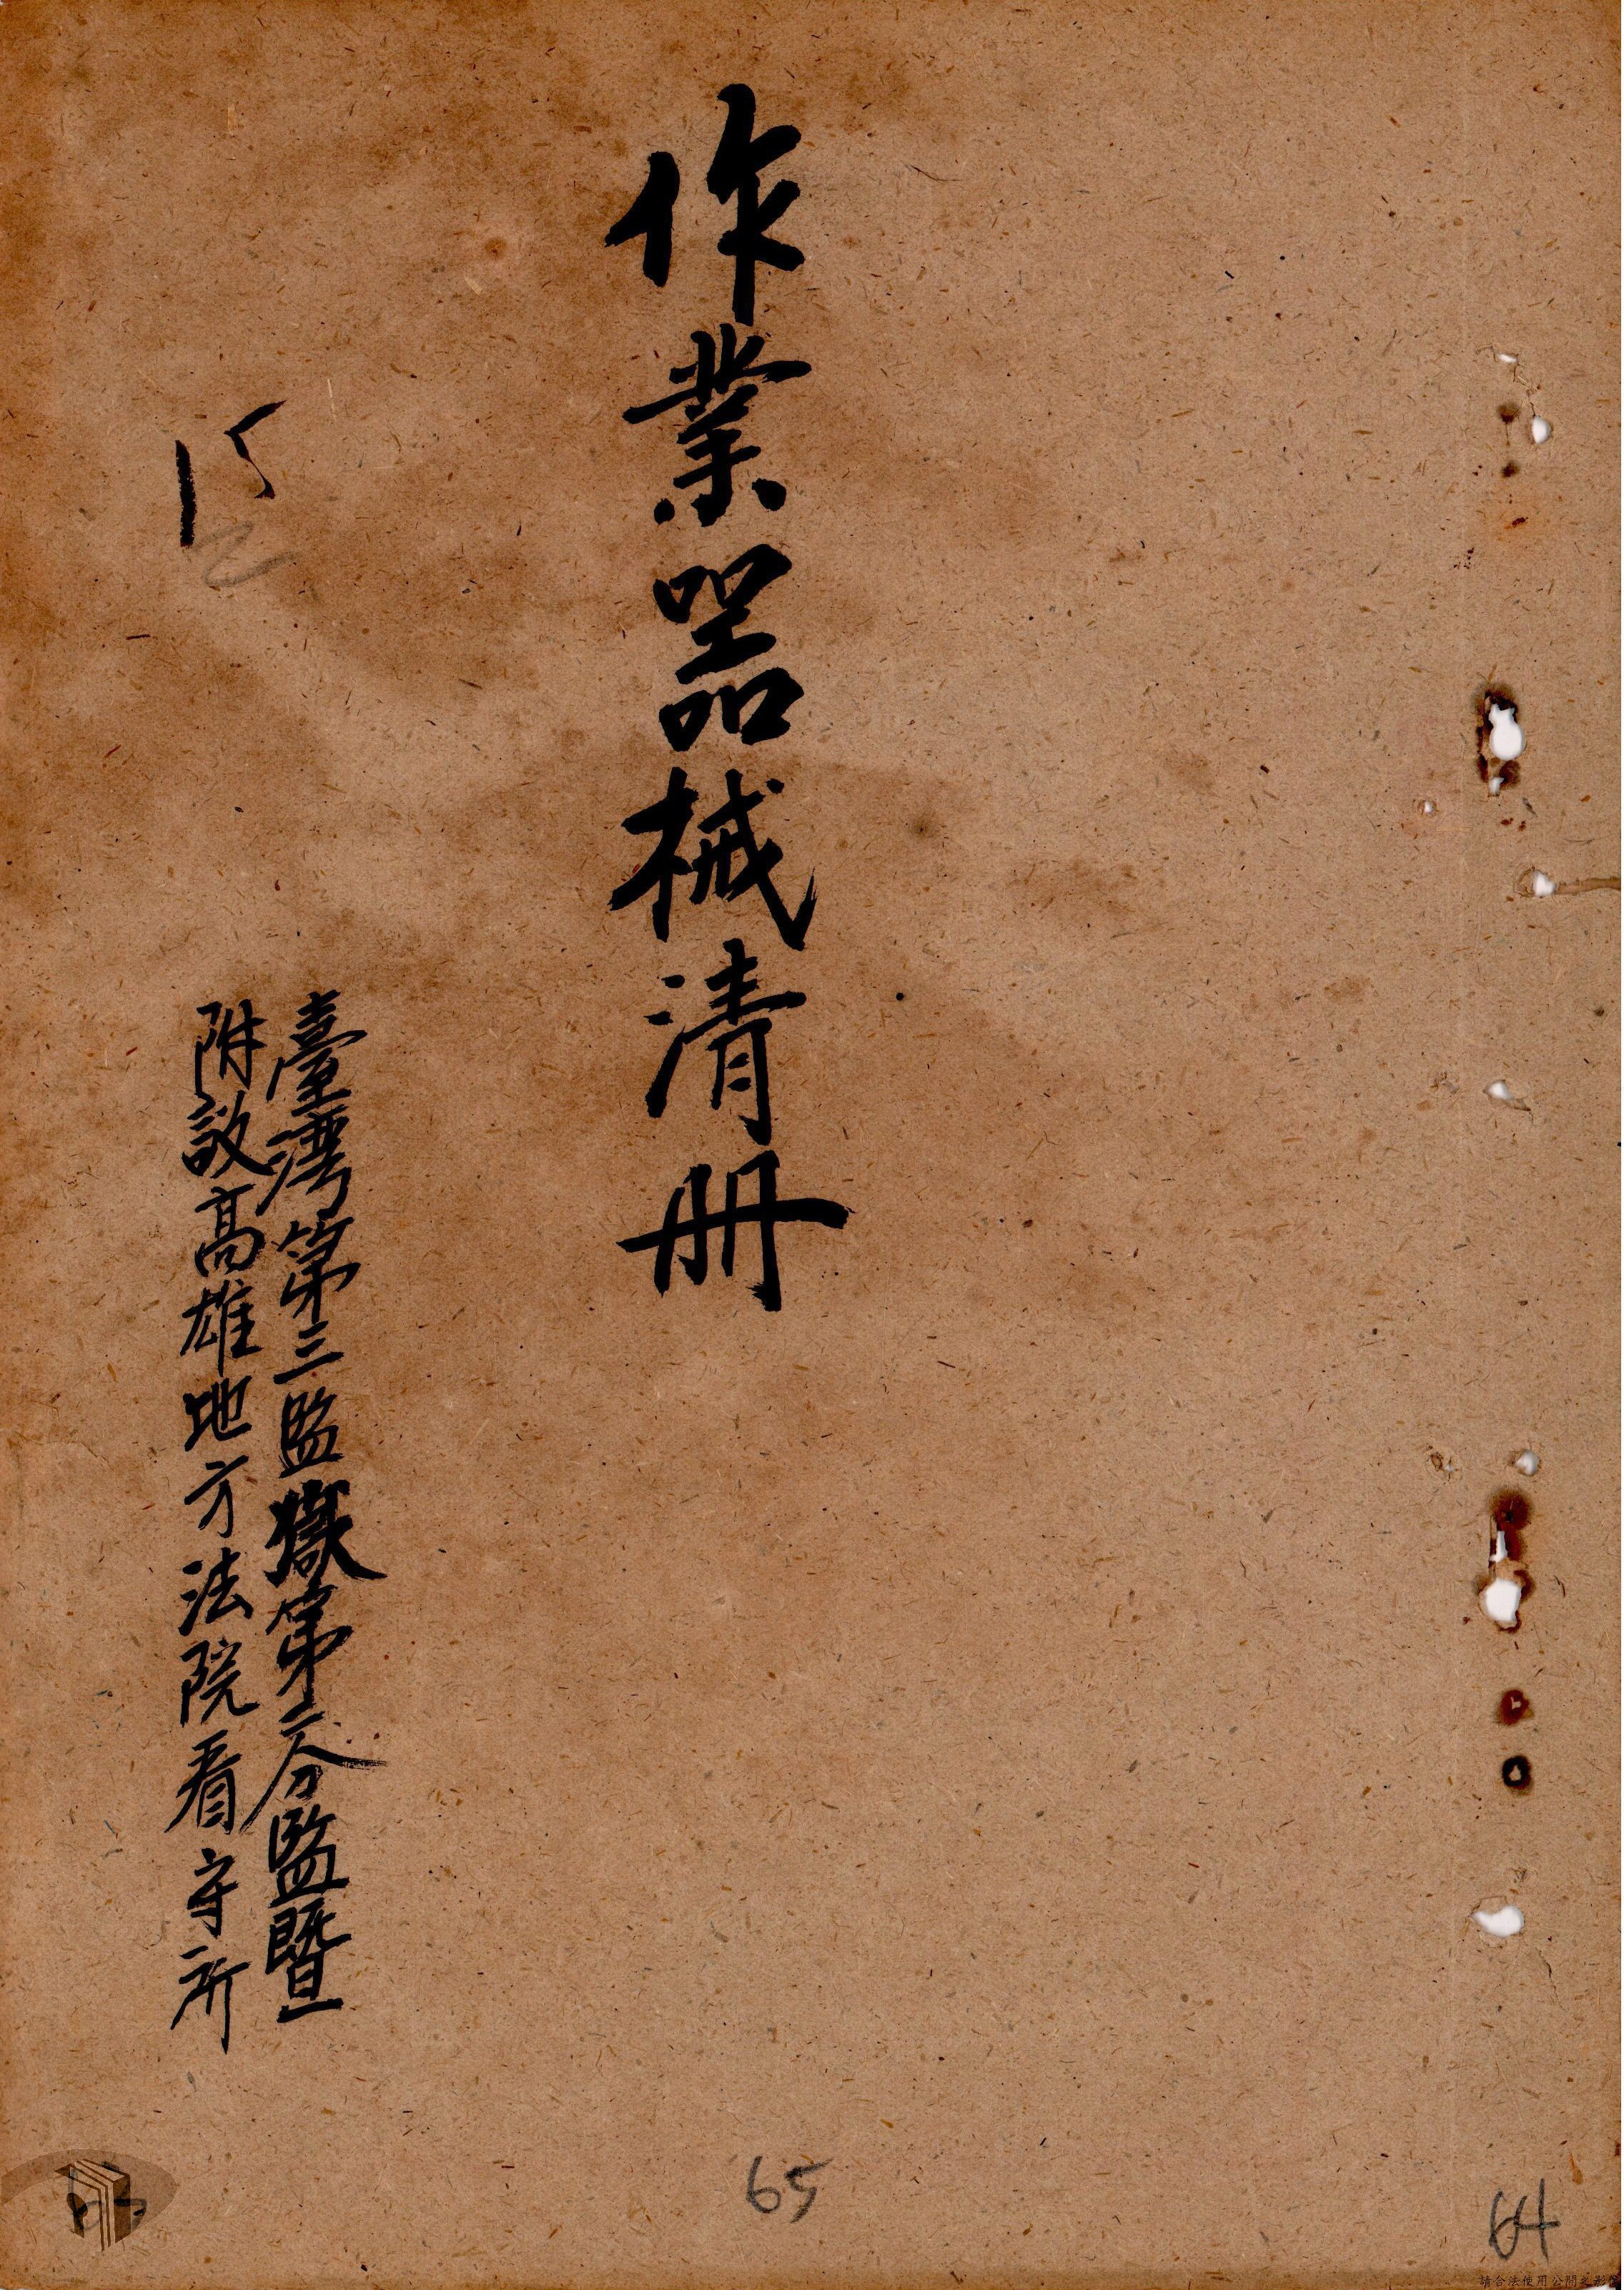 作業器械清册
臺灣第三監獄第二分監暨
附設高雄地方法院看守所
15
65
64
請合法使用公開之影像